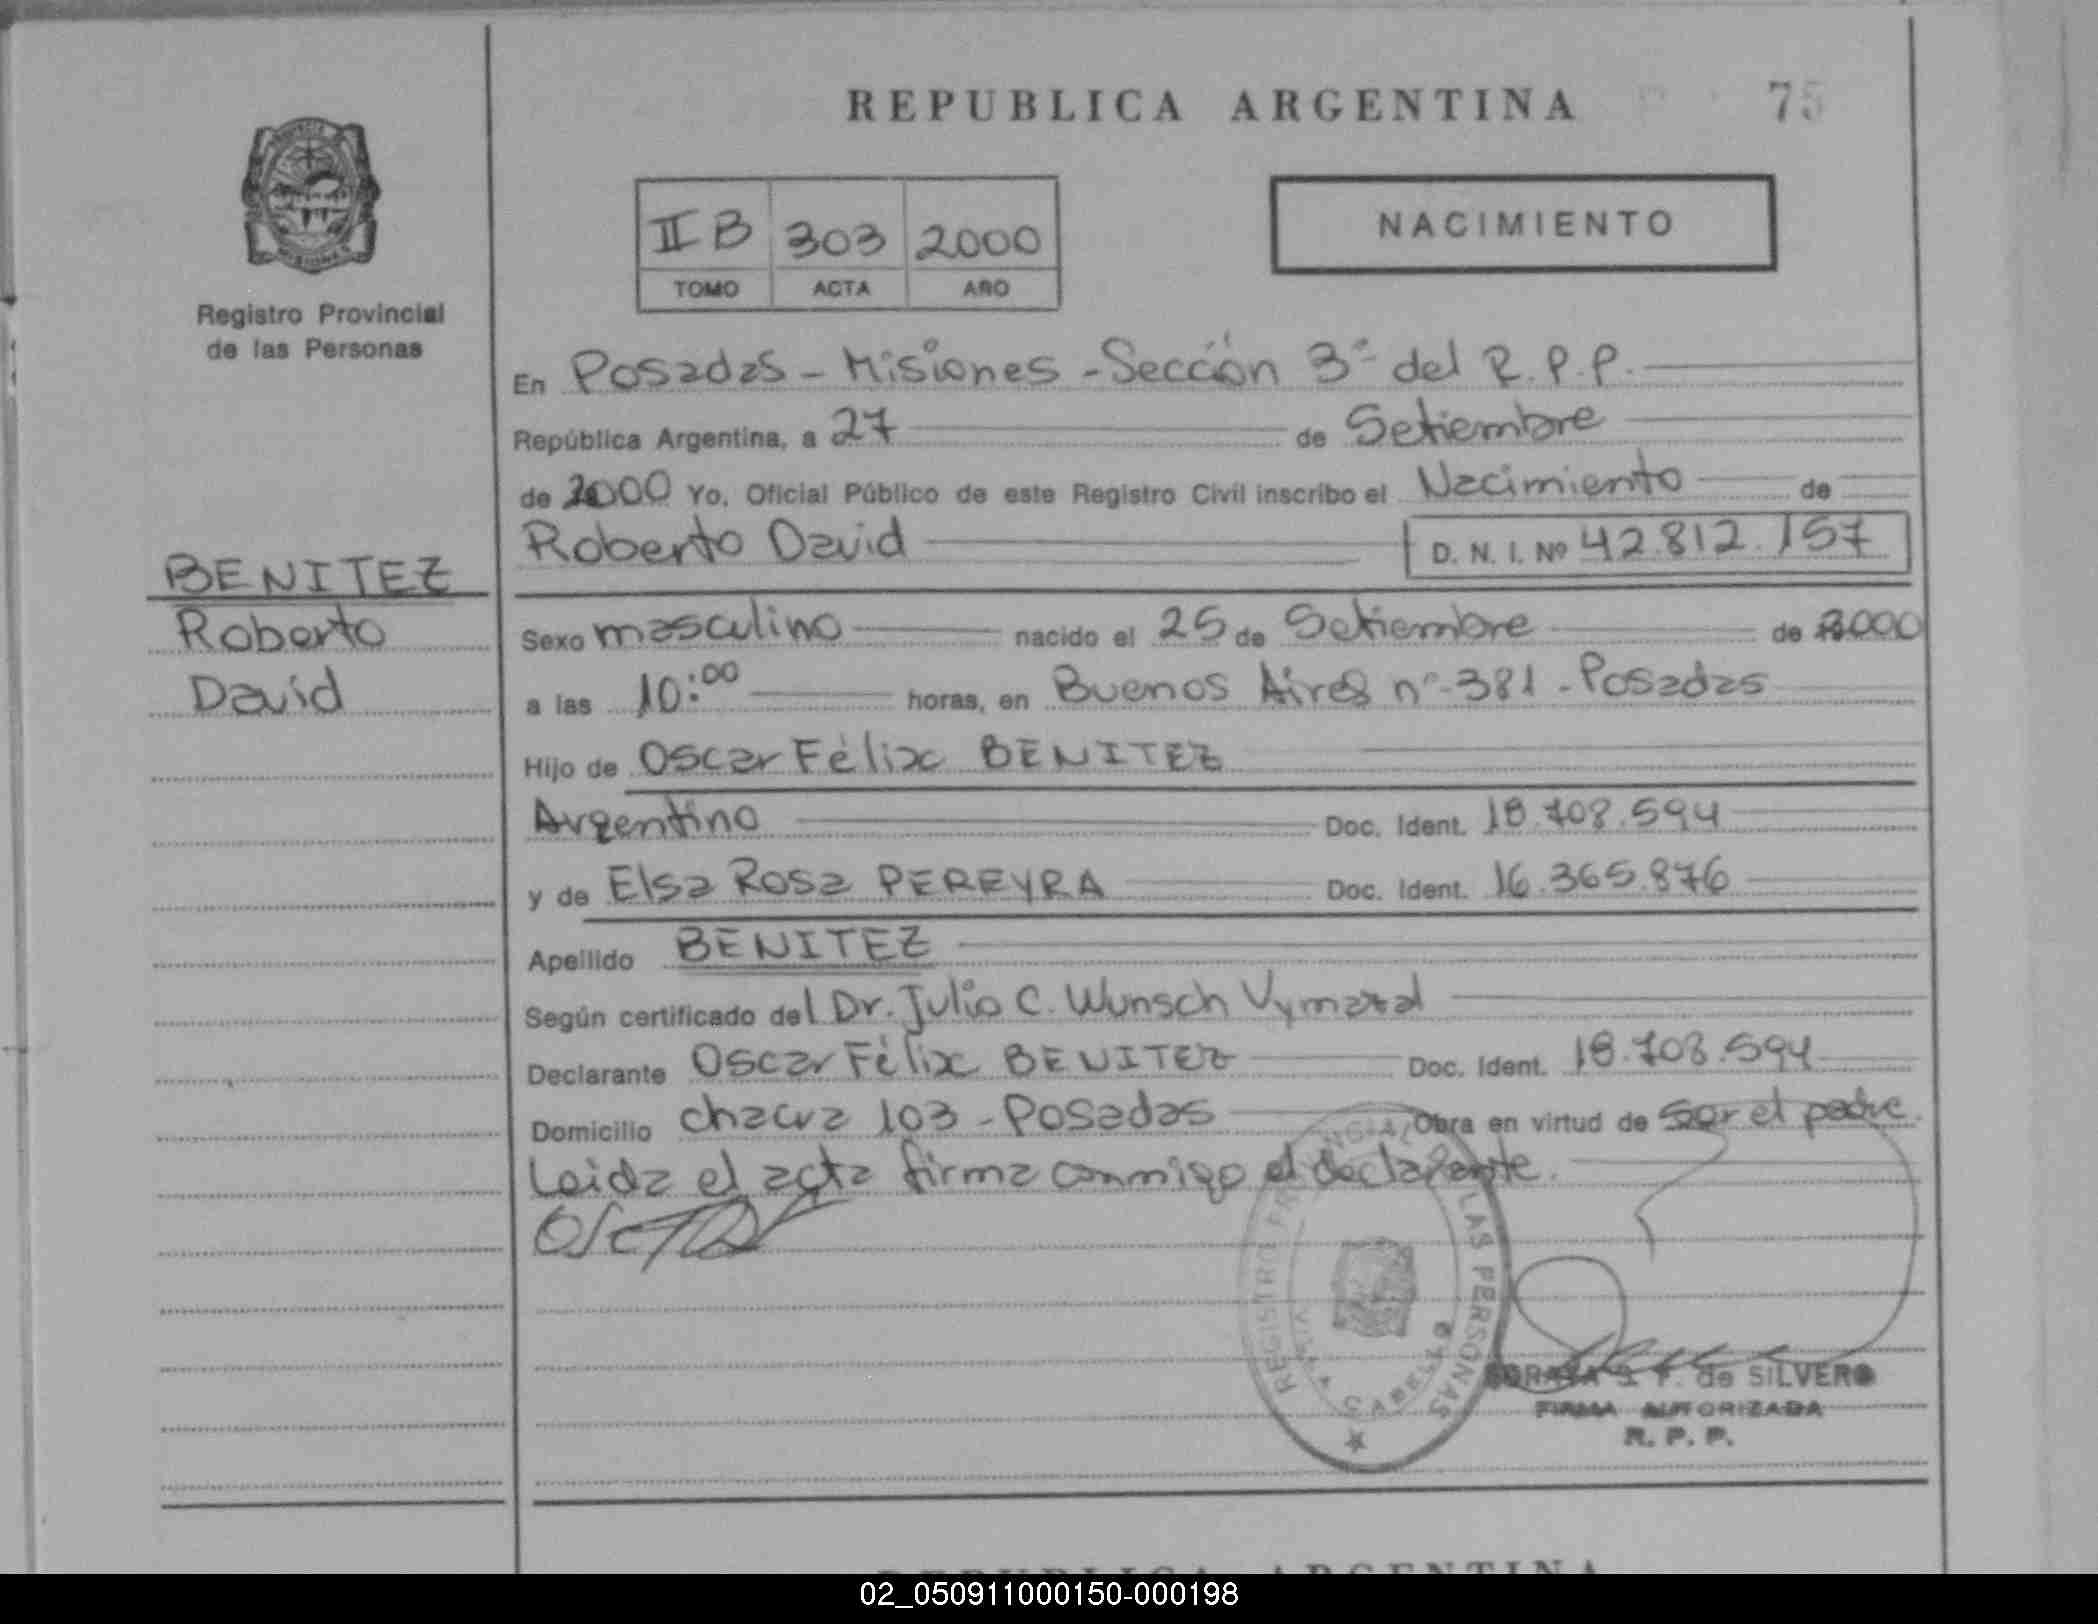 REPUBLICA ARGENTINA 75
II B 303 2000
TOMO ACTA AÑO
NACIMIENTO
Registro Provincial
de las Personas
En Posadas - Misiones - Sección 3ª del R.P.P.
República Argentina, a 27 de Setiembre
de 2000 Yo, Oficial Público de este Registro Civil inscribo el Nacimiento de
Roberto David D. N. I. Nº 42.812.157
BENITEZ
Roberto
David
Sexo masculino nacido el 25 de Setiembre de 2000
a las 10:00 horas, en Buenos Aires nº 381 - Posadas
Hijo de Oscar Félix BENITEZ
Argentino Doc. Ident. 18.708.594
y de Elsa Rosa PEREYRA Doc. Ident. 16.365.876
Apellido BENITEZ
Según certificado del Dr. Julio C. Wunsch Vymazal
Declarante Oscar Félix BENITEZ Doc. Ident. 18.708.594
Domicilio chacra 103 - Posadas Obra en virtud de ser el padre.
Leida el acta firma conmigo el declarante.
REGISTRO PROVINCIAL LAS PERSONAS
de SILVERO
FIRMA AUTORIZADA
R. P. P.
REPUBLICA ARGENTINA
02_050911000150-000198